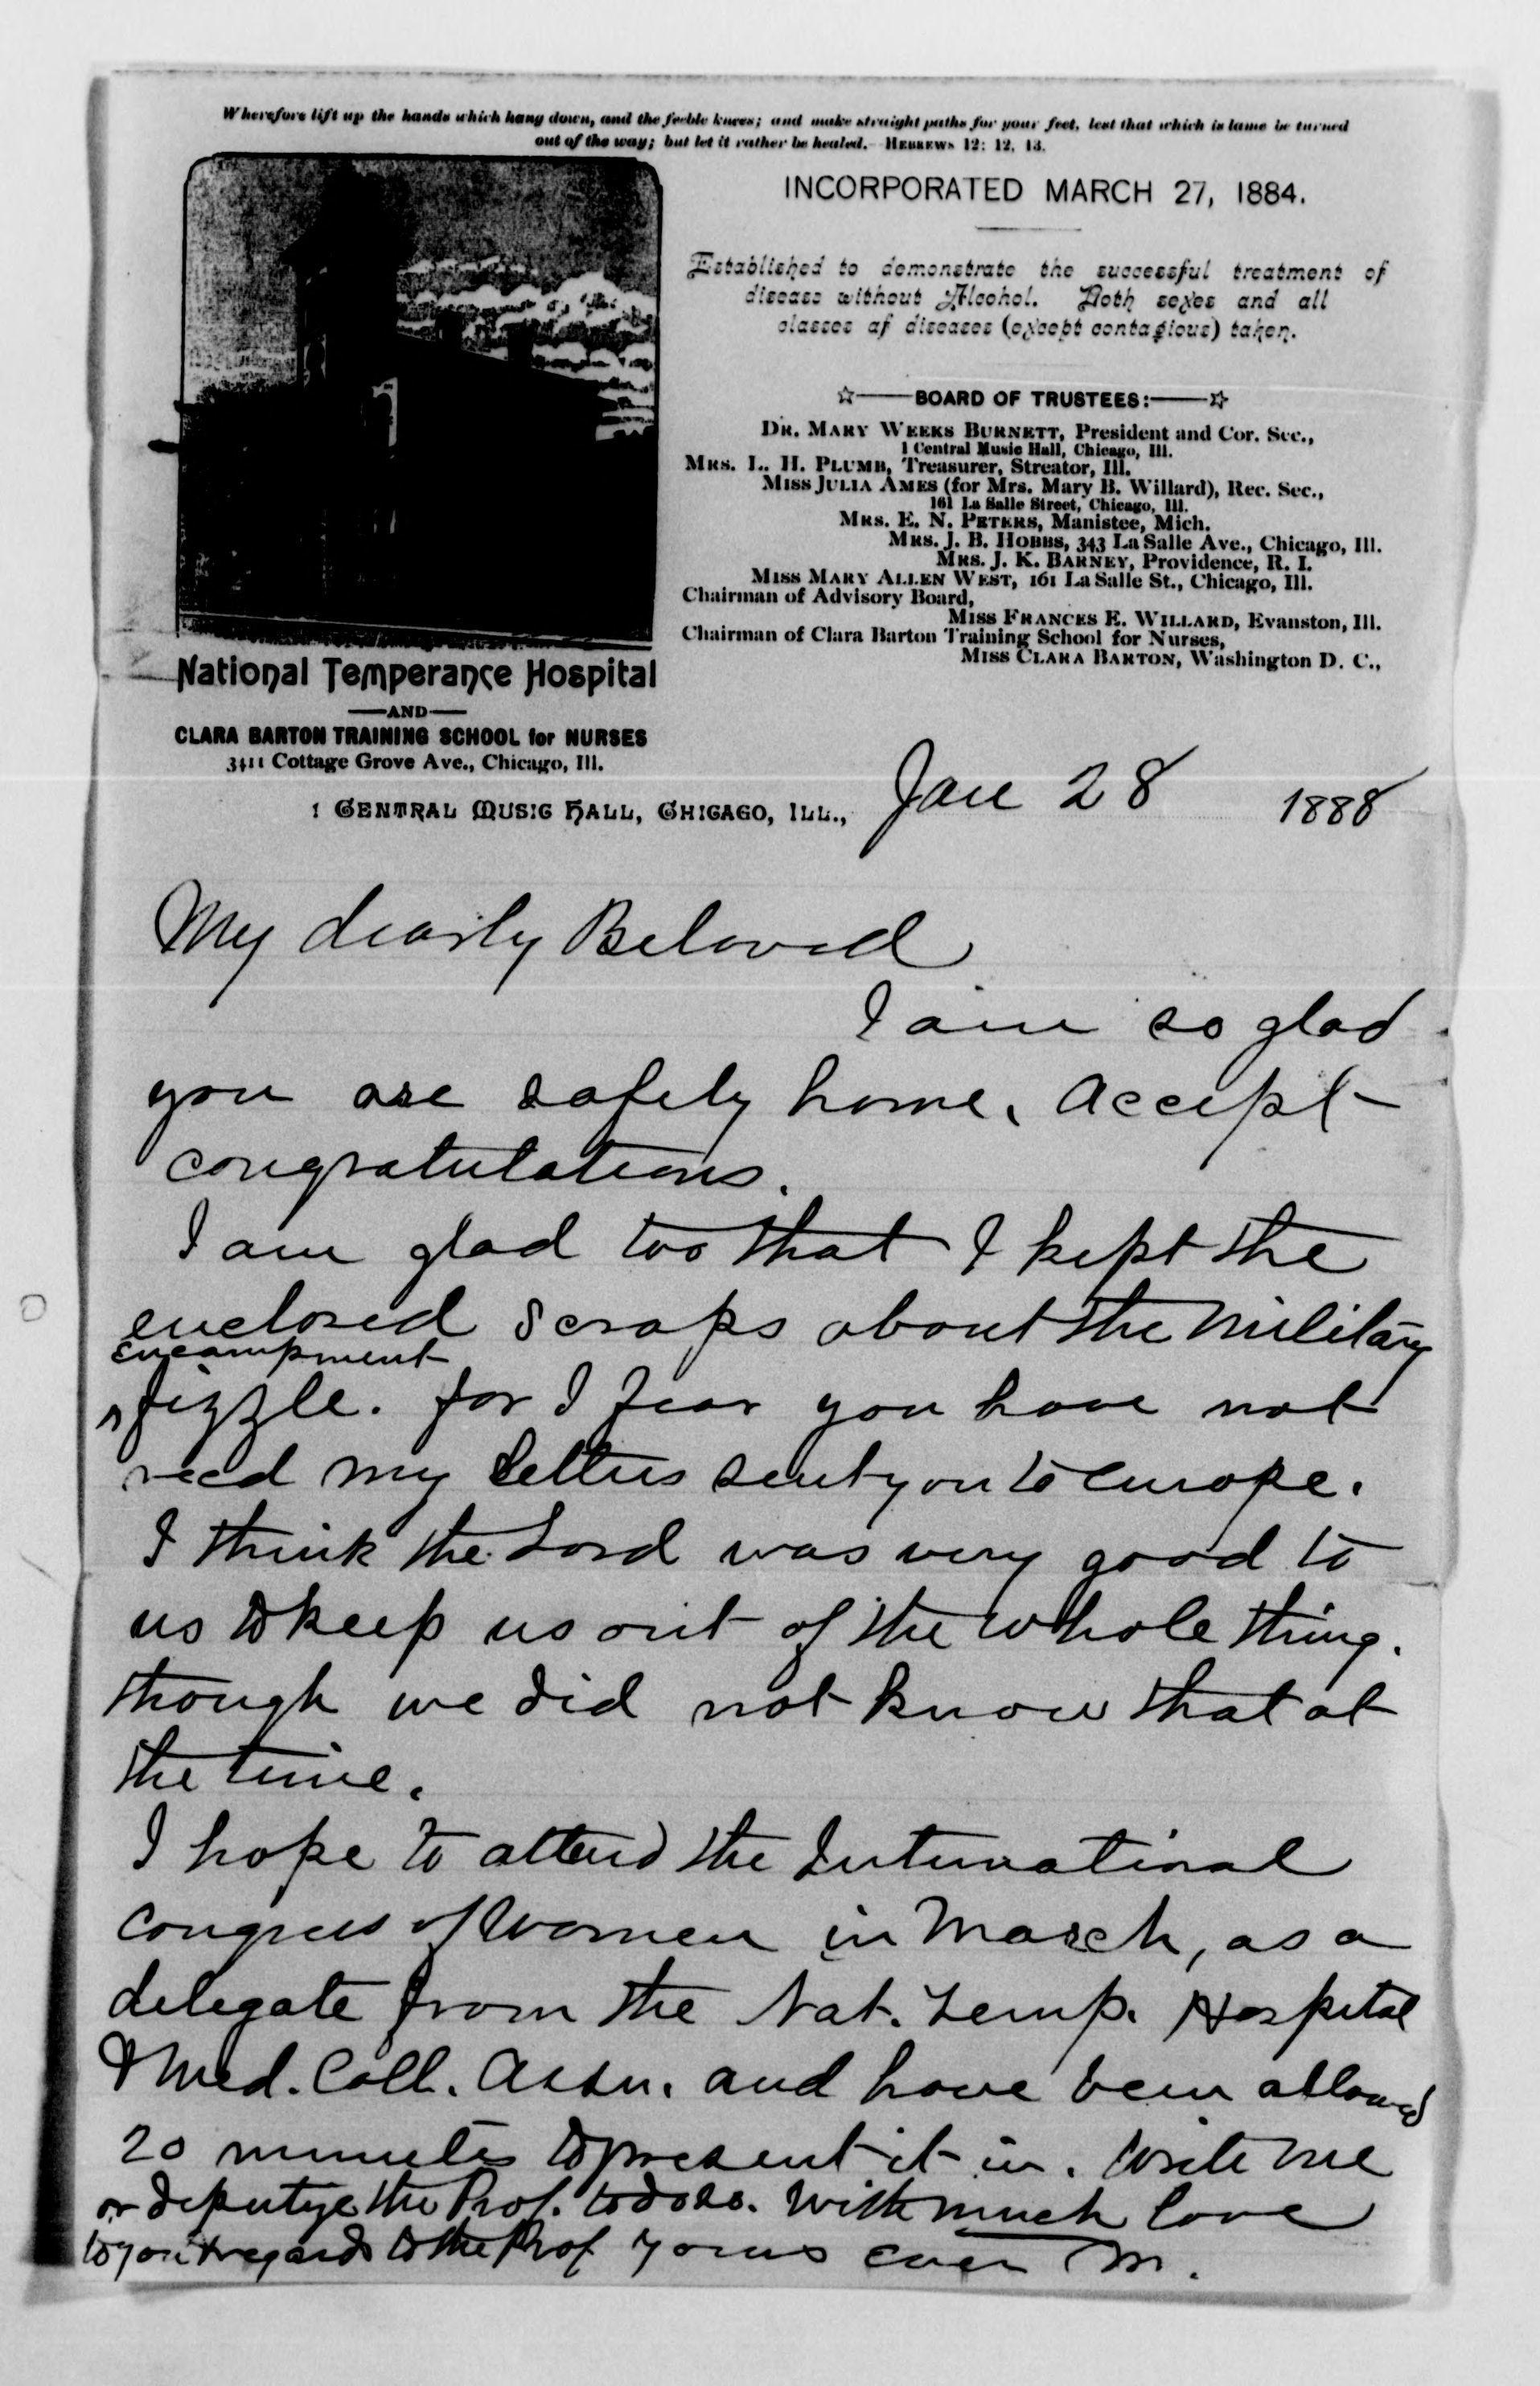 Wherefore lift up the hands which hang down, and the feeble knees; and make straight paths for your feet, lest that which is lame be turned
out of the way; but let it rather be healed.—HEBREWS 12: 12, 13.
INCORPORATED MARCH 27, 1884.
Established to demonstrate the successful treatment of
disease without Alcohol. Both sexes and all
classes af diseases (except contagious) taken.
☆——BOARD OF TRUSTEES:——☆
DR. MARY WEEKS BURNETT, President and Cor. Sec.,
1 Central Music Hall, Chicago, Ill.
MRS. L. H. PLUMB, Treasurer, Streator, Ill.
MISS JULIA AMES (for Mrs. Mary B. Willard), Rec. Sec.,
161 La Salle Street, Chicago, Ill.
MRS. E. N. PETERS, Manistee, Mich.
MRS. J. B. HOBBS, 343 La Salle Ave., Chicago, Ill.
MRS. J. K. BARNEY, Providence, R. I.
MISS MARY ALLEN WEST, 161 La Salle St., Chicago, Ill.
Chairman of Advisory Board,
MISS FRANCES E. WILLARD, Evanston, Ill.
Chairman of Clara Barton Training School for Nurses,
MISS CLARA BARTON, Washington D. C.,
National Temperance Hospital
—AND—
CLARA BARTON TRAINING SCHOOL for NURSES
3411 Cottage Grove Ave., Chicago, Ill.
1 CENTRAL MUSIC HALL, CHICAGO, ILL., Jan 28 1888
My dearly Beloved
I am so glad
you are safely home. Accept
congratulations.
I am glad too that I kept the
enclosed scraps about the military
encampment
^fizzle. for I fear you have not
recd my letters sent you to Europe.
I think the Lord was very good to
us to keep us out of the whole thing.
though we did not know that at
the time.
I hope to attend the International
Congress of Women in March, as a
delegate from the Nat. Temp. Hospital
& Med. Coll. Assn. and have been allowed
20 minutes to present it in. Write me
or deputize the Prof. to do so. With much love
to you & regards to the Prof Yours ever M.